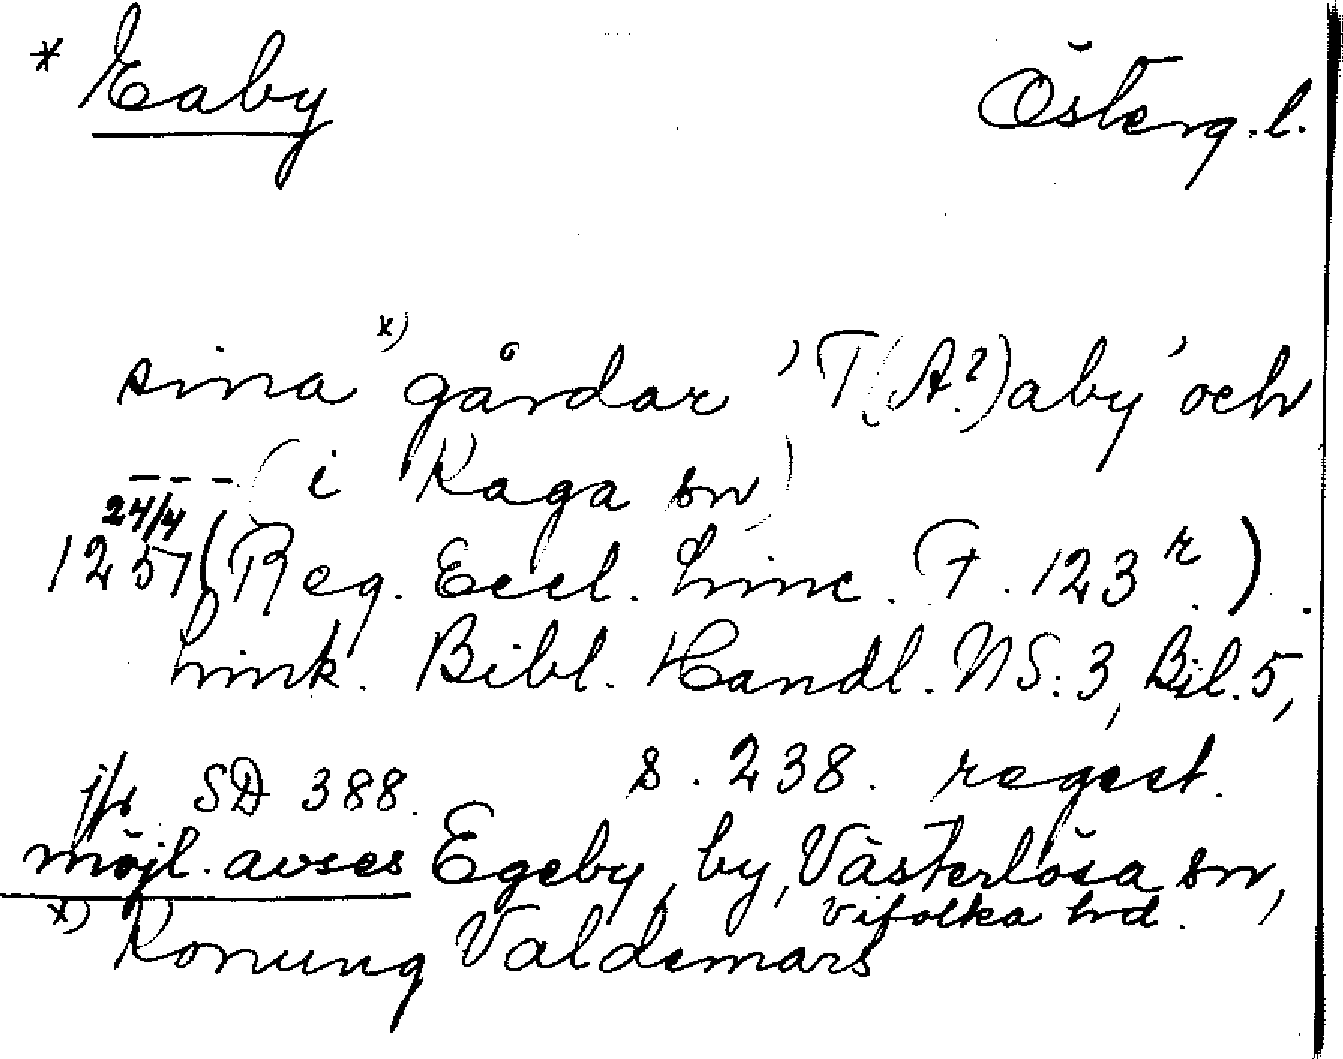 * Eaby Österg.l.
sina x) gårdar 'T(A?)aby' och
- - - - (i Kaga sn)
24/4
1257 (Reg. Eccl. Linc. F. 123 r.).
Link. Bibl. Handl. NS: 3, Bil. 5,
s. 238. regest.
jfr SD 388.
möjl. avses Egeby, by, Västerlösa sn,
Vifolka hd.
x) Konung Valdemars